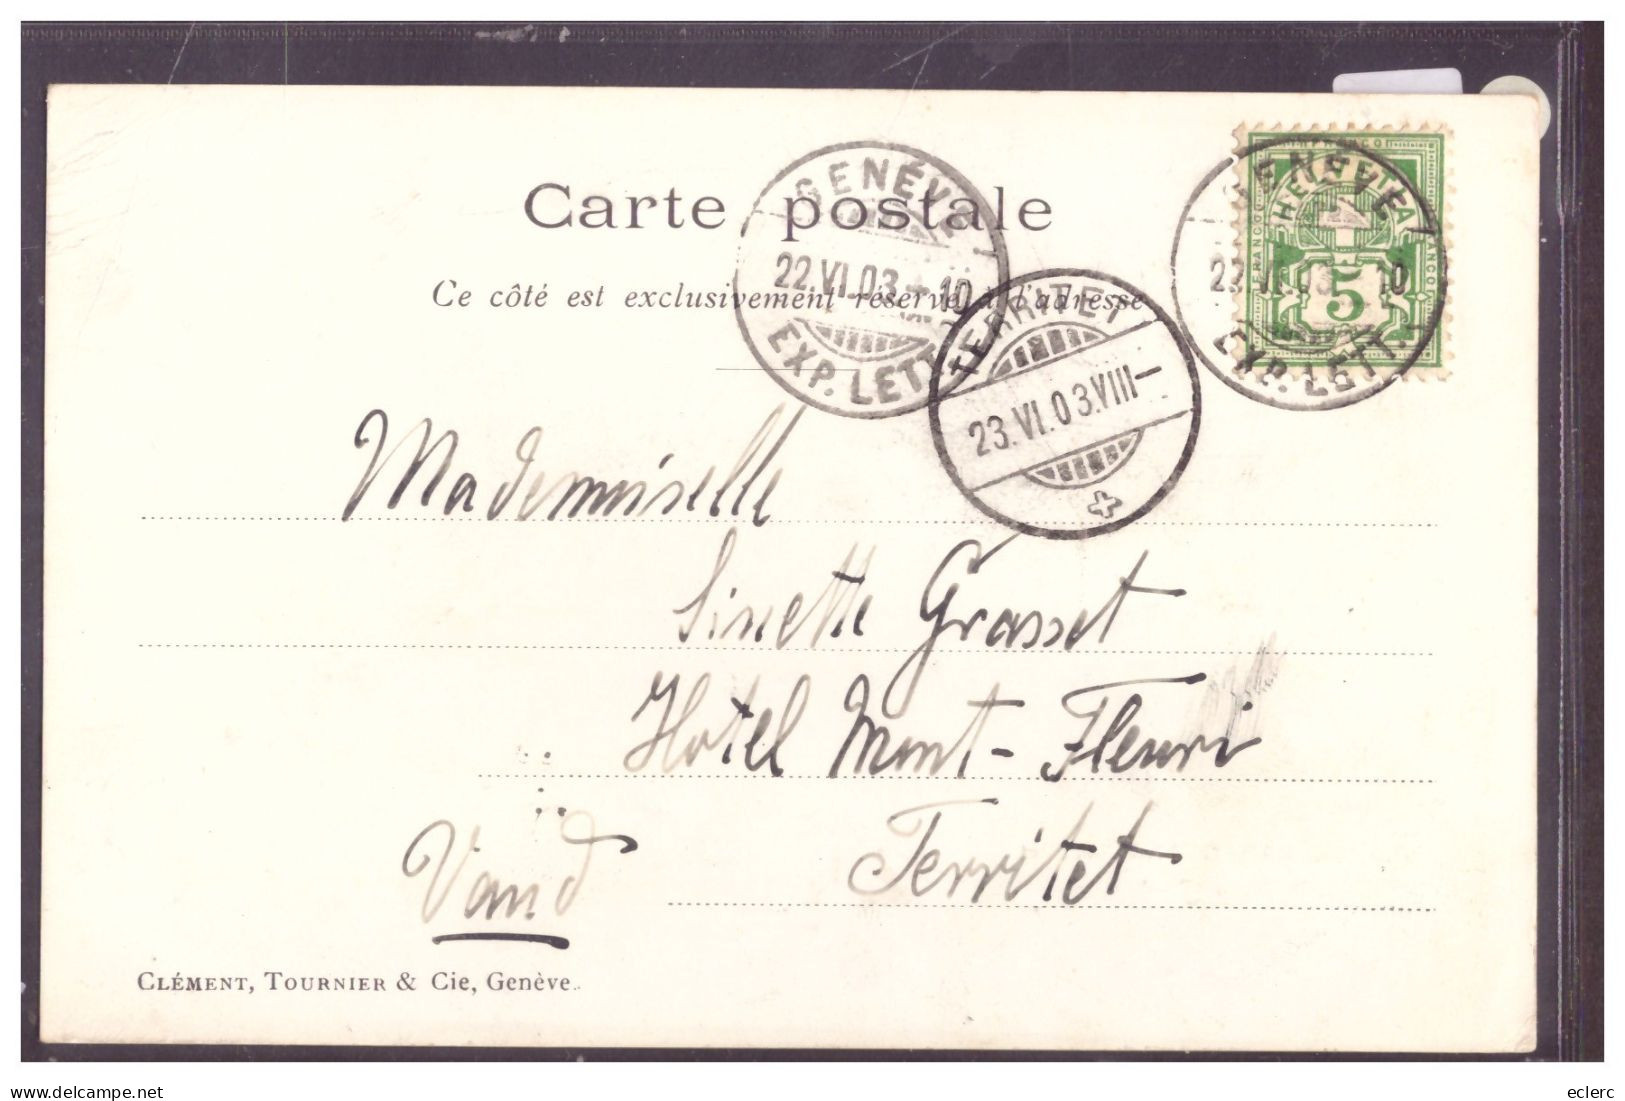 Carte postale
Ce côté est exclusivement réservé à l'adresse
GENÈVE 1
22.VI.03-10
EXP. LETT.
TERRITET
23.VI.03.VIII-
GENÈVE 1
22.VI.03-10
EXP. LETT.
FRANCO
HELVETIA
FRANCO
FRANCO
5
Mademoiselle
Sinette Grasset
Hotel Mont-Fleuri
Territet
Vaud
CLÉMENT, TOURNIER & Cie, Genève.
delcampe.net
eclerc